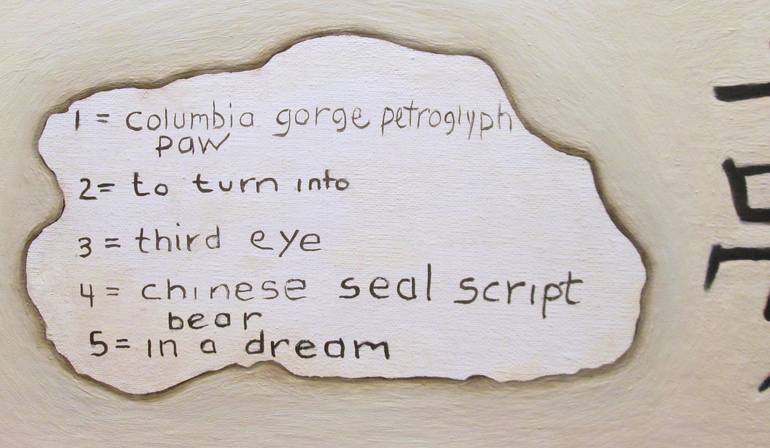 1 = columbia gorge petroglyph
paw
2= to turn into
3 = third eye
4 = chinese seal script
bear
5= in a dream